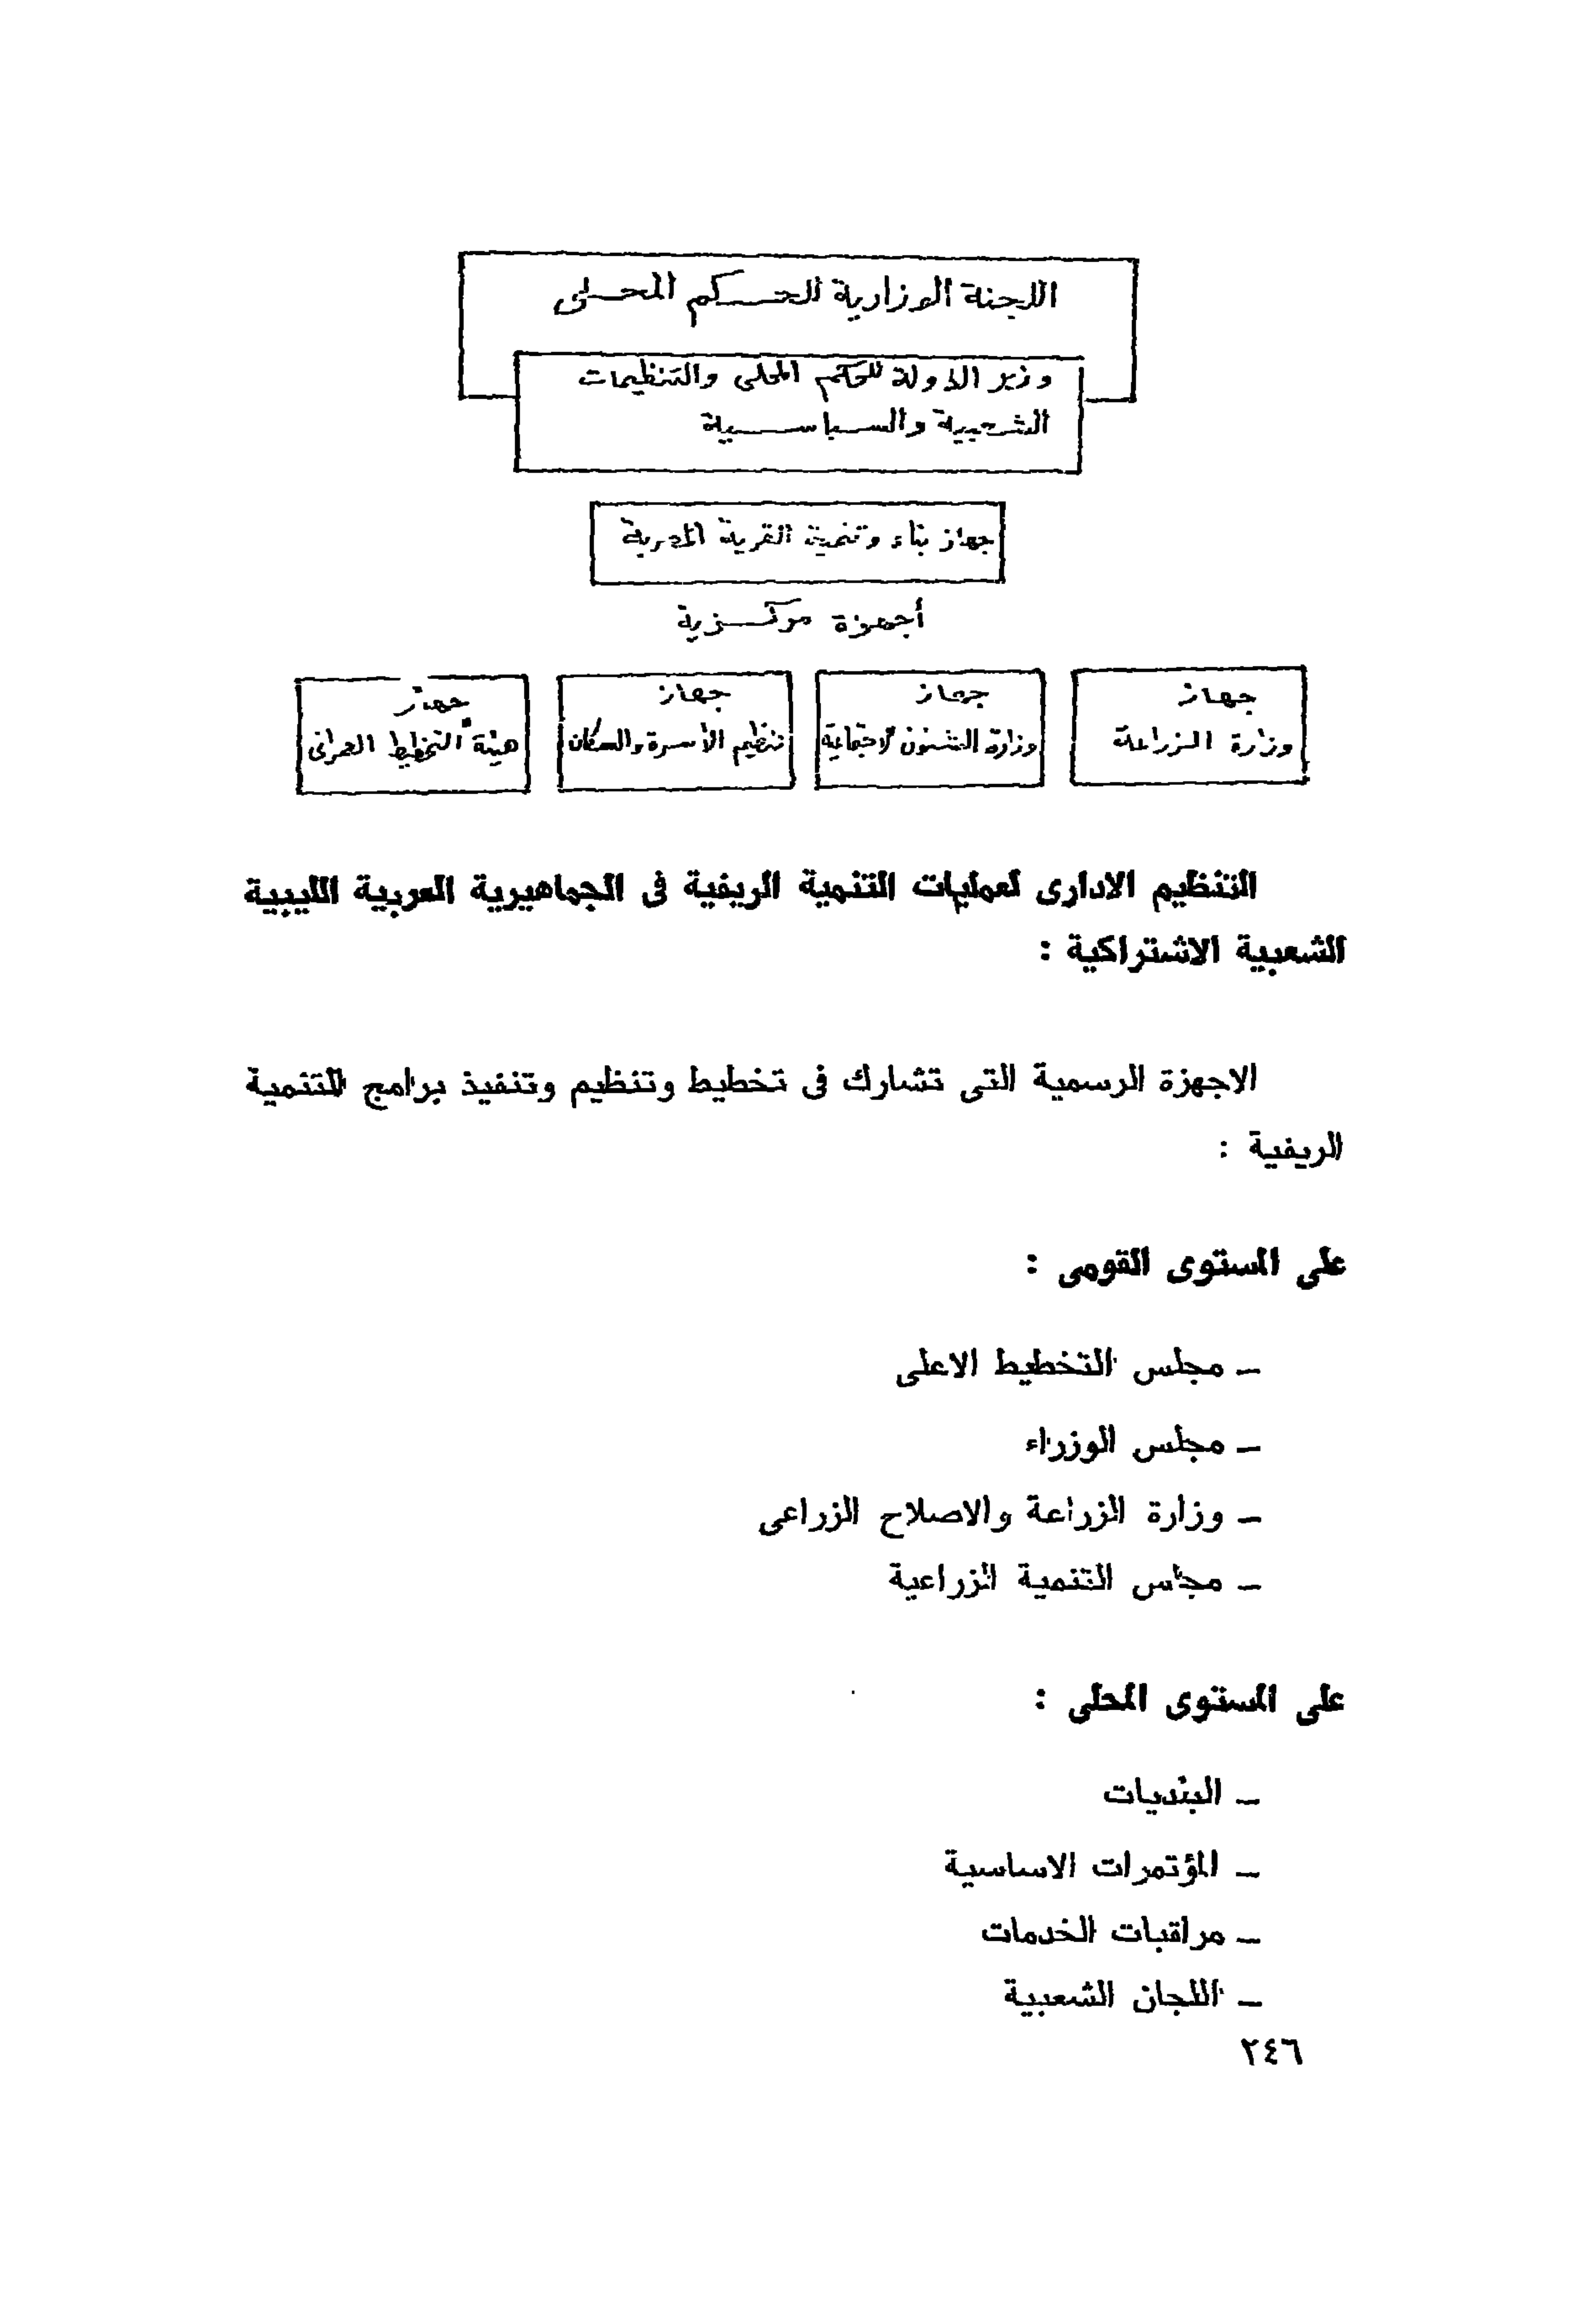 اللجنة الوزارية للحكم المحلى
وزير الدولة للحكم المحلى والتنظيمات
الشعبية والسياسية
جهاز بناء وتنمية القرية المصرية
أجهزة مركزية
جهاز
وزارة الزراعة
جهاز
وزارة الشئون الاجتماعية
جهاز
تنظيم الأسرة والسكان
جهاز
هيئة التخطيط العمرانى
التنظيم الادارى لعمليات التنمية الريفية فى الجماهيرية العربية الليبية
الشعبية الاشتراكية :
الاجهزة الرسمية التى تشارك فى تخطيط وتنظيم وتنفيذ برامج للتنمية
الريفية :
على المستوى القومى :
ــ مجلس التخطيط الاعلى
ــ مجلس الوزراء
ــ وزارة الزراعة والاصلاح الزراعى
ــ مجلس التنمية الزراعية
على المستوى المحلى :
ــ البلديات
ــ المؤتمرات الاساسية
ــ مراقبات الخدمات
ــ اللجان الشعبية
٢٤٦